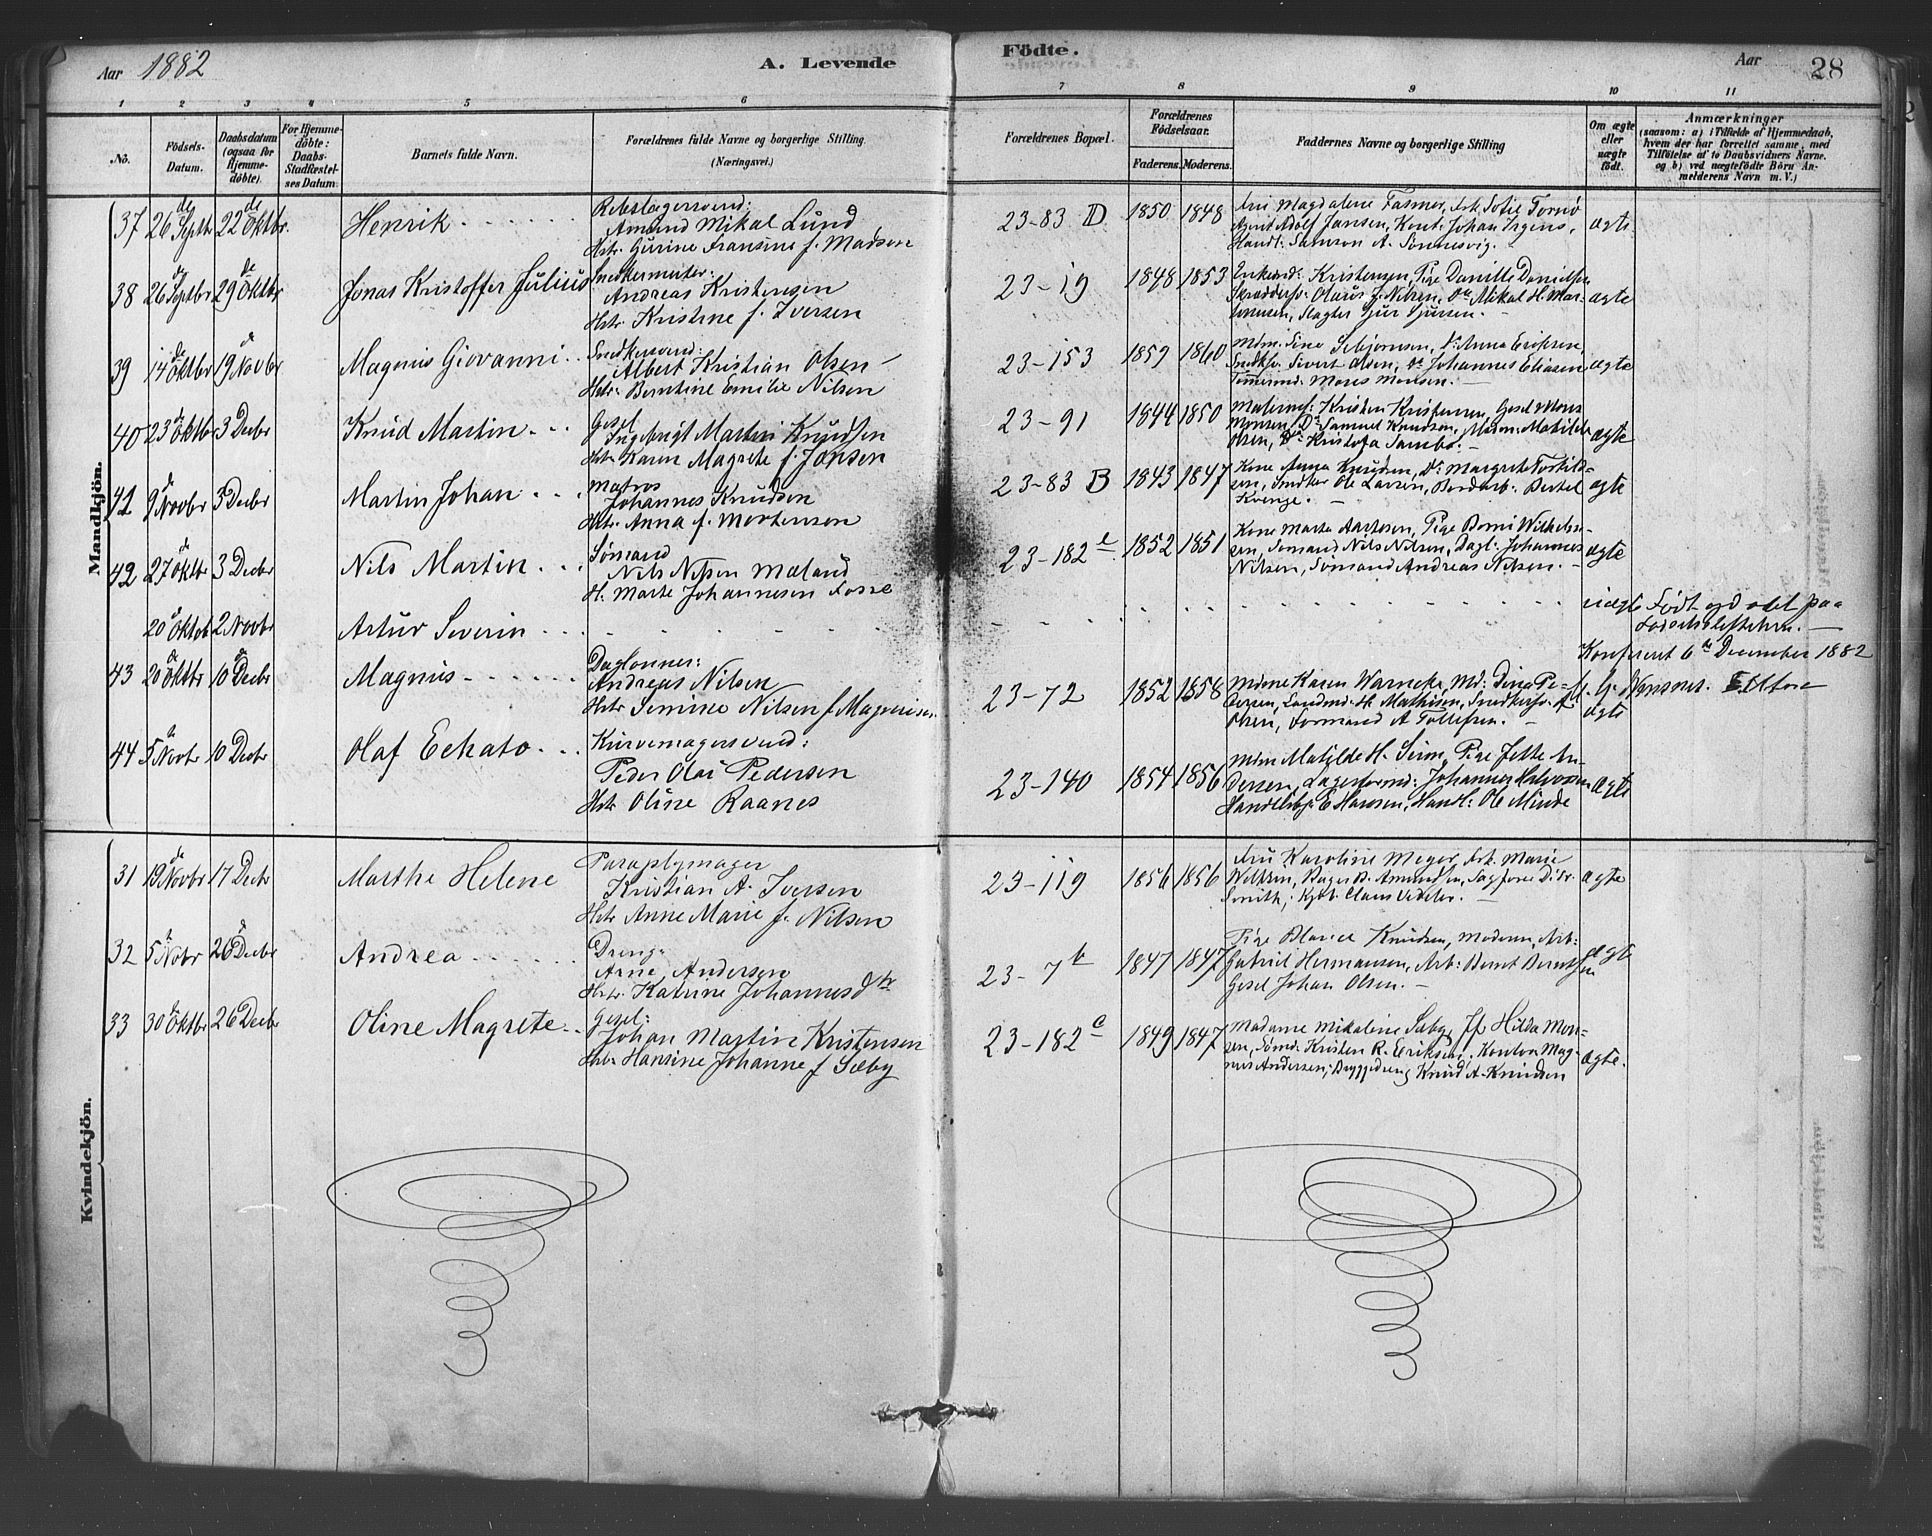 Aar 1882
A. Levende
Födte.
Aar 28
1 2 3 4 5 6 7 8 9 10 11
No.
Födsels-Datum.
Daabsdatum (ogsaa for Hjemme-döbte).
For Hjemme-döbte: Daabs-Stadfæstel-ses Datum.
Barnets fulde Navn.
Forældrenes fulde Navne og borgerlige Stilling. (Næringsvei.)
Forældrenes Bopæl.
Forældrenes Födselsaar.
Faderens. Moderens.
Faddernes Navne og borgerlige Stilling
Om ægte eller uægte födt.
Anmærkninger
(saasom: a) i Tilfælde af Hjemmedaab,
hvem der har forrettet samme, med
Tilföielse af to Daabsvidners Navne.
og b) ved uægtefödte Börn An-
melderens Navn m. V.)
Mandkjön.
37 26de Septbr 22de Oktbr. Henrik
Rebslagersvend:
Amund Mikal Lund
Hstr. Gurine Fransine f. Madsen
23-83 D 1850 1848
Fru Magdalene Fasmer, Frk. Sofie Tornö
Agent Adolf Jansen, Kont: Johan Irgens,
Handl: Samson A. Sönnesvig.
ægte
38 26de Septbr 29de Oktbr Jonas Kristoffer Julius
Snedkermester:
Andreas Kristensen
Hstr. Kristine f. Iversen
23-19 1848 1853
Enkemd: Kristensen, Pige Danitte Danielsen
Skrædders: Olaus J. Nilsen, Do Mikal H. Mar-
tinussen, Slagter Gjur Gjursen.
ægte
39 14de Oktbr 19de Novbr Magnus Giovanni
Snedkersvend:
Albert Kristian Olsen
Hstr: Berntine Emilie Nilsen
23-153 1859 1860
Mdm: Sine Sebjörnsen, Do Anna Eriksen,
Snedksv: Sivert Olsen, Do Johannes Eliasen
Tömmermd: Mons Monsen.
ægte
40 23de Oktbr 3 Decbr Knud Martin
Gesel
Ingebrigt Martin Knudsen
Hstr. Karen Magrete f. Jansen
23-91 1844 1850
Kristen Kristensen, Gesel Mons
Monsen, Do Samuel Knudsen, Madm: Matilde
Olsen, Do Kristofa Sambö.
ægte
41 9de Novbr 3 Decbr Martin Johan
Matros
Johannes Knudsen
Hstr. Anna f. Mortensen
23-83 B 1843 1847
Kone Anna Knudsen, Do Margret
sen, Smedkar Ole Larsen, Bordarb: Bertel
Kvenge.
ægte
42 27de Oktbr 3 Decbr Nils Martin
Sömand
Nils Nilsen Mæland
H. Marte Johannesen Fosse
23-182 e 1852 1851
Kone Marta Aartesen, Pige Berni Wilhelm-
sen, Sömand Nils Nilsen, Dagl: Johannes
Nilsen, Sömand Andreas Nilsen.
ægte
20de Oktob 2 Novbr Artur Severin
uægte Født og döbt paa
Födselsstiftelsen.
Konfereret 6te December 1882
43 20de Oktbr 10de Decbr Magnus
Daglönner:
Andreas Nilsen
Hstr. Semine Nilsen f Magnesen
23-72 1852 1858
Mdme Karen Warneke, Md: Dina Pe-
dersen, Landmd: H. Mathisen, Snedkersv: A.
Olsen, Formand A Tollefsen.
ægte
44 5te Novbr 10 Decbr Olaf Echato
Kurvemagersvend:
Peder Olai Pedersen
Hstr Oline Raanes
23-140 1854 1856
Mdm Matilde H. Seim, Pige Jette An-
dersen, Lagerformd: Johannes Halvorsen
Handelsbj: E Hansen, Handl: Ole Minde
ægte
Kvindekjön.
31 19de Novbr 17 Decbr Marthe Helene
Paraplymager
Kristian A. Iversen
Hstr Anne Marie f. Nilsen
23-119 1856 1856
Fru Karoline Meyer, Frk. Marie
Willsin, Bager B. Amundsen, Sagförer D:
Smith, Kjöb. Claus Vedeler.
ægte
32 5te Novbr 26de Decbr Andrea
Dreng:
Arne Andersen
Hstr. Katrine Johannesdtr
23-7 b 1847 1847
Pige Knudsen, Moderen, Arb:
Gabriel Hermansen, Arb: Bernt Berntsen
Gesel Johan Olsen.
ægte
33 30de Oktbr 26 Decbr Oline Magrete
Gesel:
Johan Martin Kristensen
Hstr. Hansine Johanne f Sæby
23-182 c 1849 1847
Madame Mikaline Sæby, Jf Hilda Mon-
sen, Sömd: Kristen R. Eriksen, Kontor: Mag-
nus Andersen, Byggedreng Knud A. Knudsen
ægte.